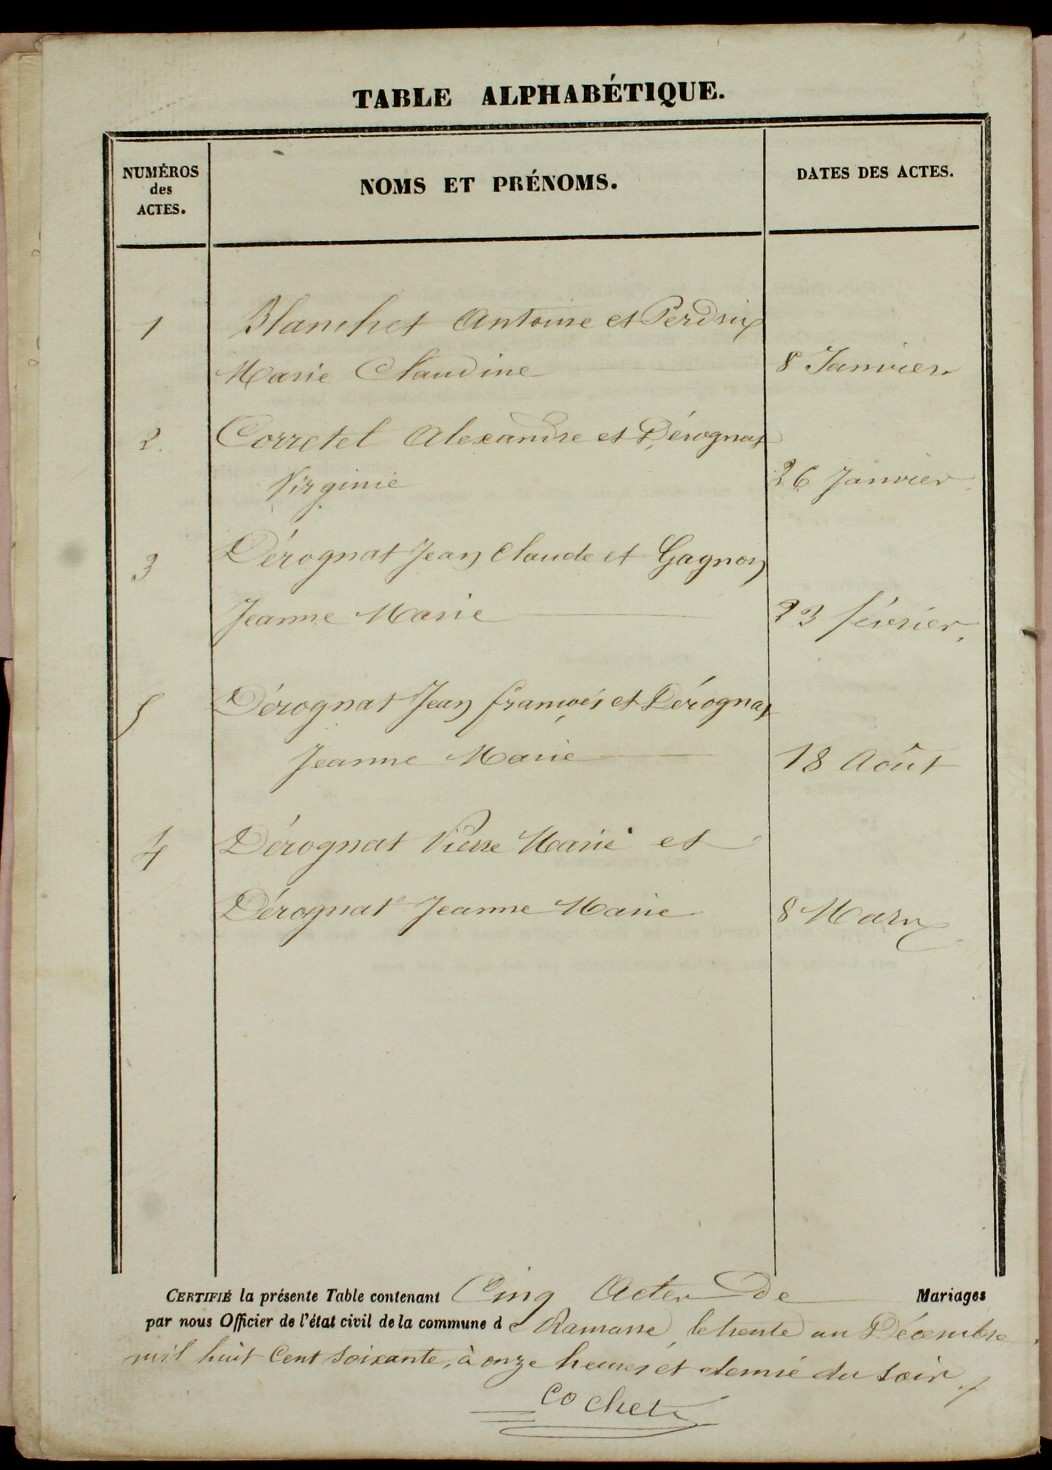 TABLE ALPHABÉTIQUE.
NUMÉROS
des
ACTES.
NOMS ET PRÉNOMS.
DATES DES ACTES.
1 Blanchet Antoine et Perdrix
Marie Claudine 8 Janvier
2. Corretel Alexandre et Dérognat
Virginie 26 Janvier
3 Dérognat Jean Claude et Gagnon
Jeanne Marie 23 février.
5 Dérognat Jean françois et Dérognat
Jeanne Marie 18 Août
4 Dérognat Pierre Marie et
Dérognat Jeanne Marie 8 Mars
CERTIFIÉ la présente Table contenant Cinq Actes De Mariages
par nous Officier de l'état civil de la commune de Ramasse, le trente un Décembre
mil huit Cent soixante, à onze heures et demie du soir./
Cochet